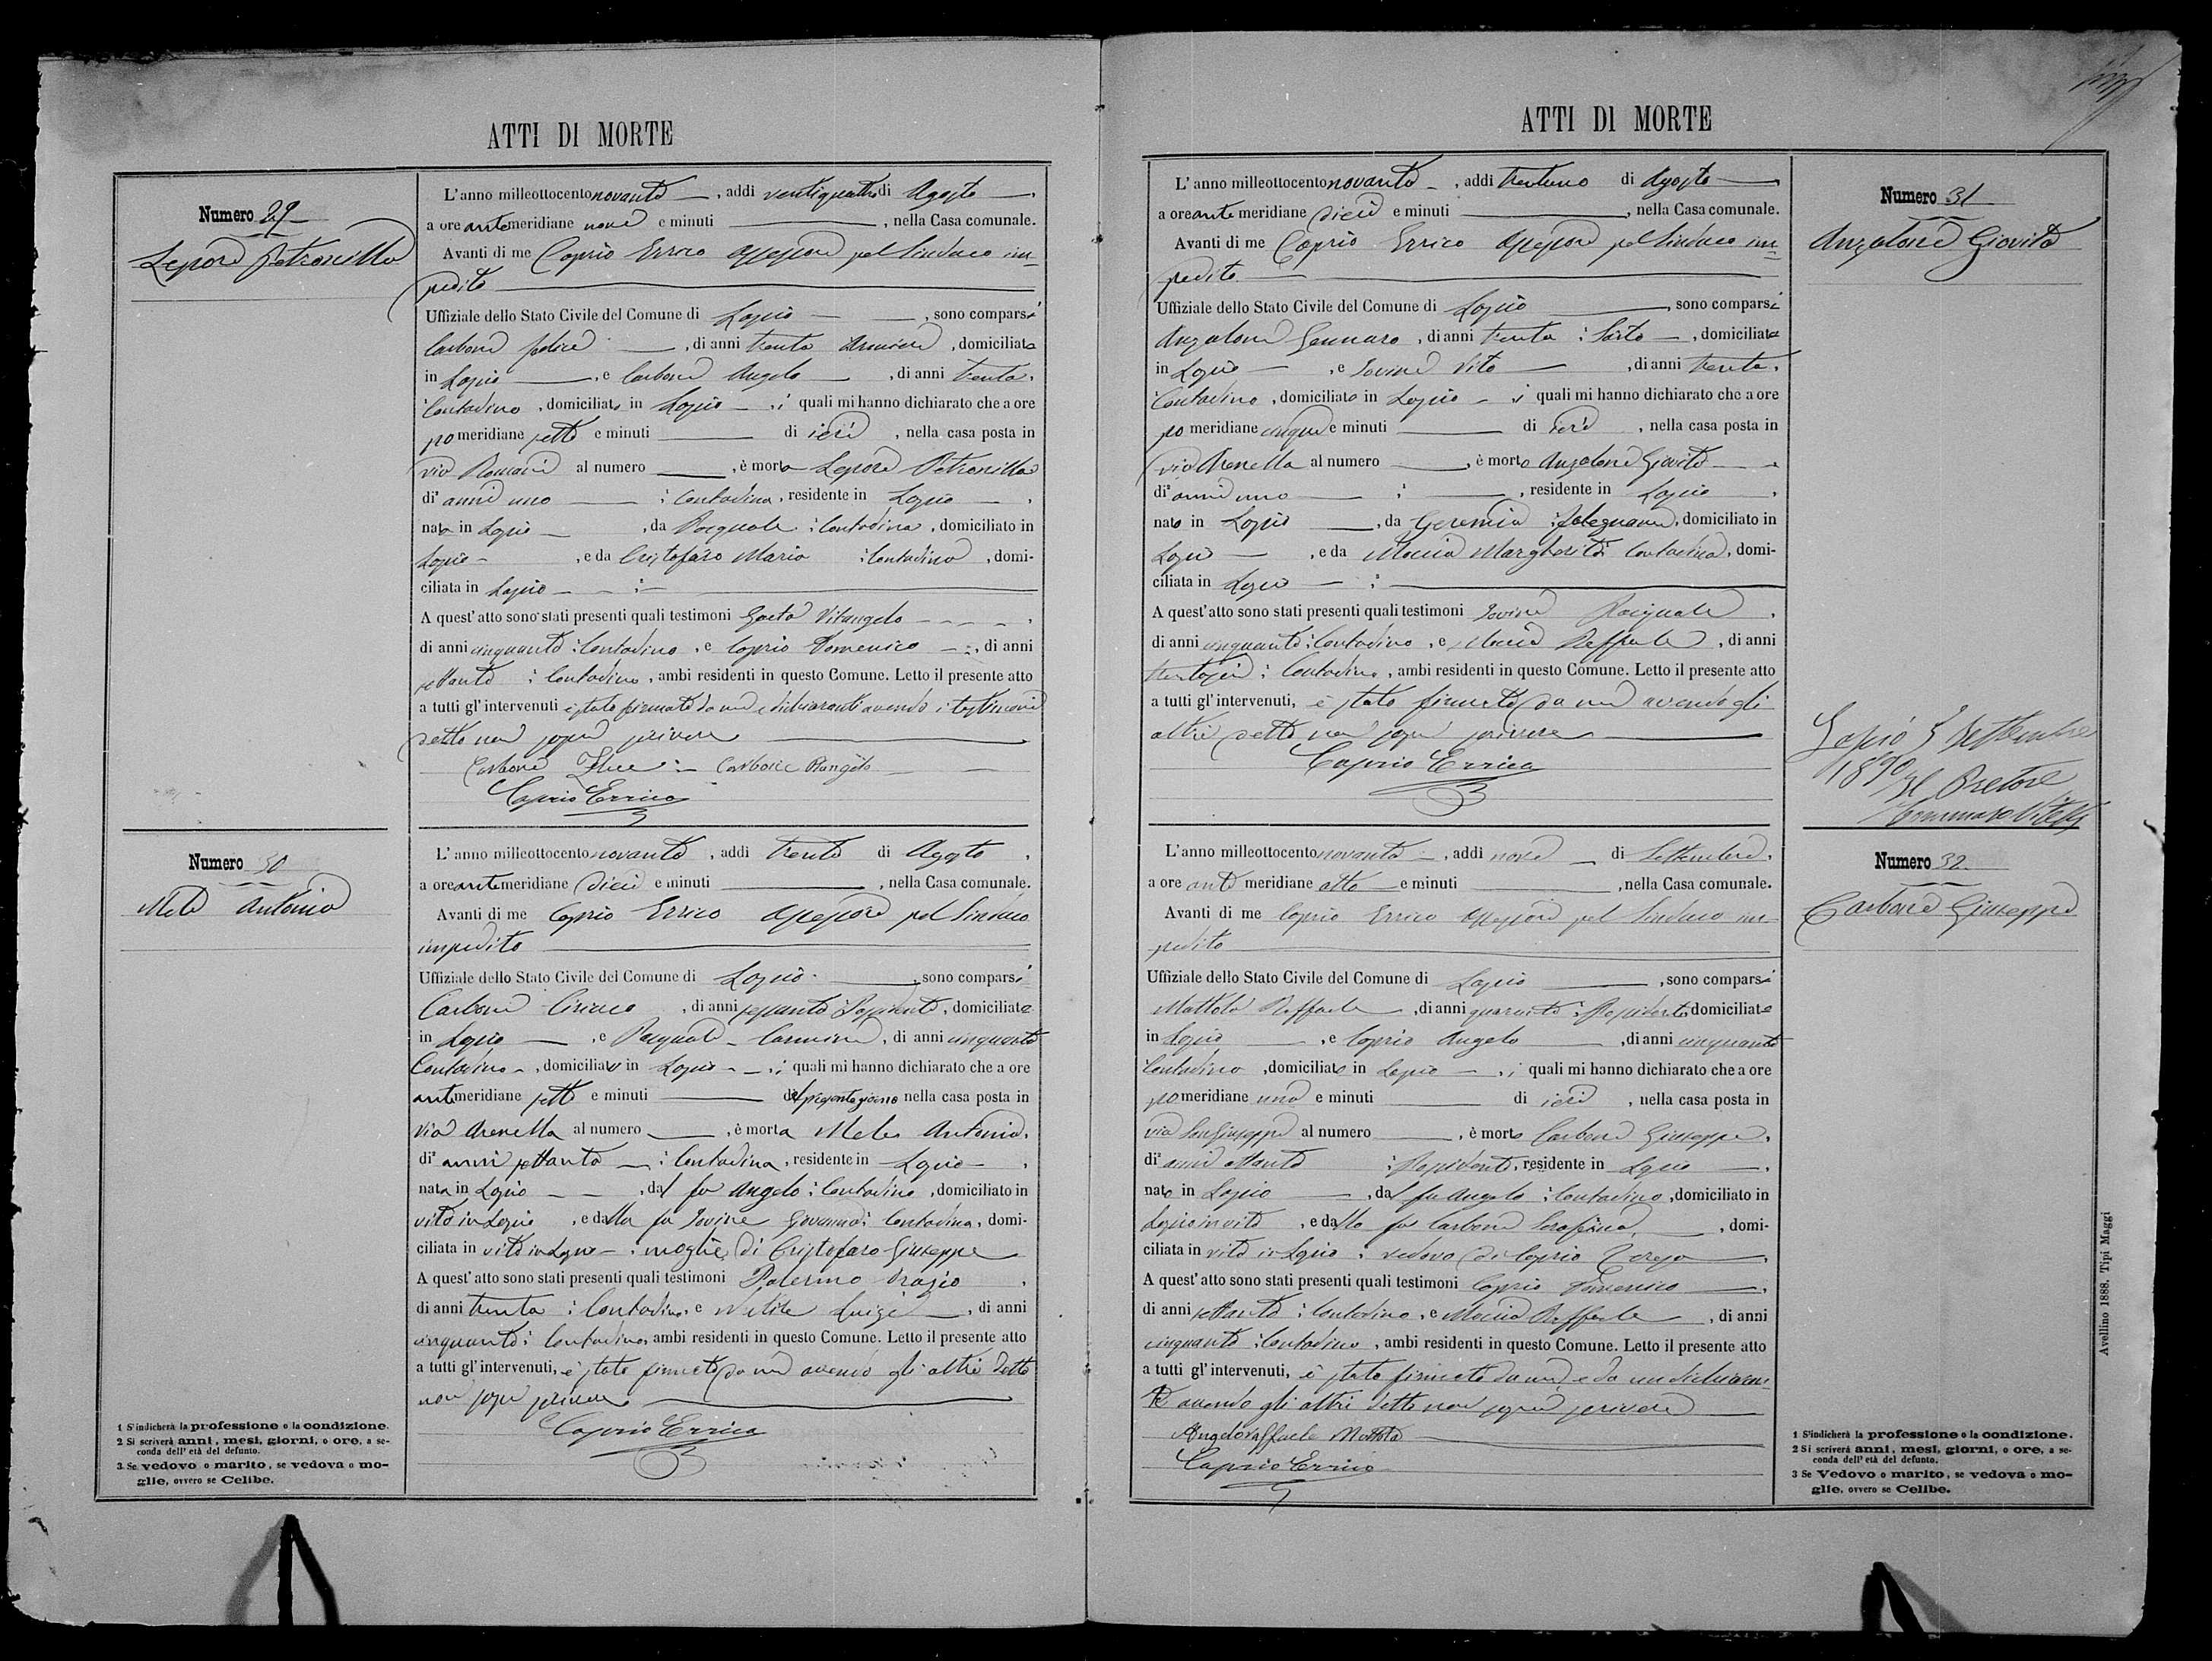 ATTI DI MORTE
Numero 29
Lepore Petronilla
L'anno milleottocentonovanta, addi ventiquattro di Agosto,
a ore antemeridiane nove e minuti, nella Casa comunale.
Avanti di me Caprio Errico Assessore pel Sindaco im-
pedito
Uffiziale dello Stato Civile del Comune di Lapio, sono comparsi
Carbone Felice, di anni trenta, domiciliato
in Lapio, e Carbone Angelo, di anni trenta,
Contadino, domiciliato in Lapio, i quali mi hanno dichiarato che a ore
pomeridiane sette e minuti di ieri, nella casa posta in
via Romani al numero, è morta Lepore Petronilla
di² anni uno Contadina, residente in Lapio,
nata in Lapio, da Pasquale Contadino, domiciliato in
Lapio, e da Cristofaro Maria Contadina, domi-
ciliata in Lapio
A quest'atto sono stati presenti quali testimoni Gaeta Vitangelo,
di anni cinquanta Contadino, e Caprio Domenico, di anni
settanta Contadino, ambi residenti in questo Comune. Letto il presente atto
a tutti gl'intervenuti è stato firmato da me e dichiaranti avendo i testimoni
detto non saper scrivere
Carbone Felice Carbone Angelo
Caprio Errico
Numero 30
Mele Antonia
L'anno milleottocentonovanta, addi trenta di Agosto,
a ore antemeridiane dieci e minuti, nella Casa comunale.
Avanti di me Caprio Errico Assessore pel Sindaco
impedito
Uffiziale dello Stato Civile del Comune di Lapio, sono comparsi
Carbone Ciriaco, di anni sessanta Possidente, domiciliato
in Lapio, e Pasquale Carmine, di anni cinquanta
Contadino, domiciliato in Lapio, i quali mi hanno dichiarato che a ore
antemeridiane sette e minuti del presente giorno nella casa posta in
via Arenella al numero, è morta Mele Antonia,
di² anni settanta Contadina, residente in Lapio,
nata in Lapio, dal fu Angelo Contadino, domiciliato in
vita in Lapio, e dalla fu Iovine Giovanna Contadina, domi-
ciliata in vita in Lapio moglie di Cristofaro Giuseppe
A quest'atto sono stati presenti quali testimoni Palermo Orazio,
di anni trenta Contadino, e Luigi, di anni
cinquanta Contadino, ambi residenti in questo Comune. Letto il presente atto
a tutti gl'intervenuti, è stato firmato da me avendo gli altri detto
non saper scrivere
Caprio Errico
1 S'indicherà la professione o la condizione.
2 Si scriverà anni, mesi, giorni, o ore, a se-
conda dell'età del defunto.
3 Se vedovo o marito, se vedova o mo-
glie, ovvero se Celibe.
ATTI DI MORTE
L'anno milleottocentonovanta, addi trentuno di Agosto,
a ore antemeridiane dieci e minuti, nella Casa comunale.
Avanti di me Caprio Errico Assessore pel Sindaco im-
pedito
Uffiziale dello Stato Civile del Comune di Lapio, sono comparsi
Anzalone Gennaro, di anni trenta Sarto, domiciliato
in Lapio, e Iovine Vito, di anni trenta,
Contadino, domiciliato in Lapio, i quali mi hanno dichiarato che a ore
pomeridiane cinque e minuti di ieri, nella casa posta in
via Arenella al numero, è morto Anzalone Giovito
di² anni uno, residente in Lapio,
nato in Lapio, da Geremia falegname, domiciliato in
Lapio, e da Moccia Margherita Contadina, domi-
ciliata in Lapio
A quest'atto sono stati presenti quali testimoni Iovine Pasquale,
di anni cinquanta Contadino, e Moccia Raffaele, di anni
trentasei Contadino, ambi residenti in questo Comune. Letto il presente atto
a tutti gl'intervenuti, è stato firmato da me avendo gli
altri detto non saper scrivere
Caprio Errico
Numero 31
Anzalone Giovito
Lapio 5 Settembre
1890
Il Pretore
Tommaso Vitelli
L'anno milleottocentonovanta, addi nove di Settembre,
a ore ante meridiane otto e minuti, nella Casa comunale.
Avanti di me Caprio Errico Assessore pel Sindaco im-
pedito
Uffiziale dello Stato Civile del Comune di Lapio, sono comparsi
Mattola Raffaele, di anni quaranta Possidente, domiciliato
in Lapio, e Caprio Angelo, di anni cinquanta
Contadino, domiciliato in Lapio, i quali mi hanno dichiarato che a ore
pomeridiane una e minuti di ieri, nella casa posta in
via San Giuseppe al numero, è morto Carbone Giuseppe,
di² anni ottanta Possidente, residente in Lapio,
nato in Lapio, dal fu Angelo Contadino, domiciliato in
Lapio in vita, e dalla fu Carbone Serafina, domi-
ciliata in vita in Lapio vedovo di Caprio Teresa
A quest'atto sono stati presenti quali testimoni Caprio Domenico,
di anni settanta Contadino, e Moccia Raffaele, di anni
cinquanta Contadino, ambi residenti in questo Comune. Letto il presente atto
a tutti gl'intervenuti, è stato firmato da me e da un dichiaran-
te avendo gli altri detto non saper scrivere
Angeloraffaele Mattola
Caprio Errico
Numero 32
Carbone Giuseppe
1 S'indicherà la professione o la condizione.
2 Si scriverà anni, mesi, giorni, o ore, a se-
conda dell'età del defunto.
3 Se Vedovo o marito, se vedova o mo-
glie, ovvero se Celibe.
Avellino 1888. Tipi Maggi